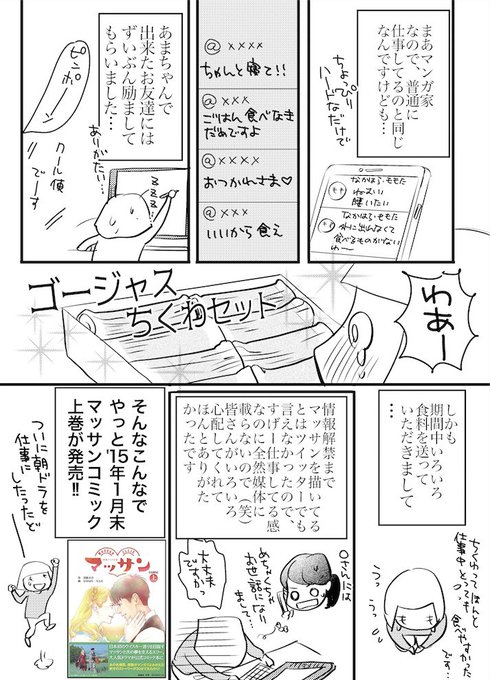 まあマンガ家
なので、普通に
仕事してるのと同じ
なんですけども…
ちょっぴり
ハードなだけで
なかはら・ももた
ねむい
眠いたい
なかはら・ももた
外に出れなくて
食べるものがない
わー
@××××
ちゃんと寝て!!
@×××
ごはん食べなき
だめですよ
@×××
おつかれさま♡
@×××
いいから食え
あまちゃんで
出来たお友達には
ずいぶん励まして
もらいました…
ありがたい…
ピンポー
クール便
でーす
ZZZ…
わぁー
ゴージャス
ちくわセット
しかも
期間中いろいろ
食料を送って
いただきまして
…
ちくわってほんと
仕事中とっても
食べやすかった
です…
うっ
うっ
情報解禁まで
マッサンを描いてる
とはツイッターでも
言えなかったので、
すげー仕事してる感
なのに全然媒体に
載らないので(笑)
皆さんがいろいろ
心配してくれて
ほんとありがた
かったです
Oさんには
めちゃくちゃ
お世話になり
まして…
大丈夫
ですかっ
そんなこんなで
やっと'15年1月末
マッサンコミック
上巻が発売!!
ついに朝ドラを
仕事に
したったど
マッサン
上